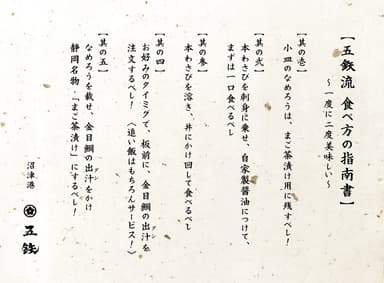 【五鉄流 食べ方の指南書】
〜一度に二度美味しい〜
【其の壱】
小皿のなめろうは、まご茶漬け用に残すべし！
【其の弐】
本わさびを刺身に乗せ、自家製醤油につけて、
まずは一口食べるべし
【其の参】
本わさびを溶き、丼にかけ回して食べるべし
【其の四】
お好みのタイミグで、板前に、金目鯛の出汁を
ダシ
注文するべし！〈追い飯はもちろんサービス！〉
【其の五】
なめろうを載せ、金目鯛の出汁をかけ
ダシ
静岡名物・「まご茶漬け」にするべし！
沼津港
五鉄